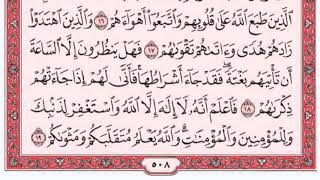 ٱلَّذِينَ طَبَعَ ٱللَّهُ عَلَىٰ قُلُوبِهِمۡ وَٱتَّبَعُوٓاْ أَهۡوَآءَهُمۡ ١٦ وَٱلَّذِينَ ٱهۡتَدَوۡاْ
زَادَهُمۡ هُدٗى وَءَاتَىٰهُمۡ تَقۡوَىٰهُمۡ ١٧ فَهَلۡ يَنظُرُونَ إِلَّا ٱلسَّاعَةَ
أَن تَأۡتِيَهُم بَغۡتَةٗۖ فَقَدۡ جَآءَ أَشۡرَاطُهَاۚ فَأَنَّىٰ لَهُمۡ إِذَا جَآءَتۡهُمۡ
ذِكۡرَىٰهُمۡ ١٨ فَٱعۡلَمۡ أَنَّهُۥ لَآ إِلَٰهَ إِلَّا ٱللَّهُ وَٱسۡتَغۡفِرۡ لِذَنۢبِكَ
وَلِلۡمُؤۡمِنِينَ وَٱلۡمُؤۡمِنَٰتِۗ وَٱللَّهُ يَعۡلَمُ مُتَقَلَّبَكُمۡ وَمَثۡوَىٰكُمۡ ١٩
٥٠٨